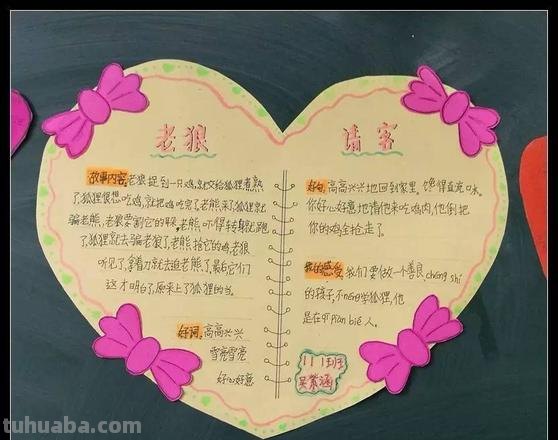 老狼 请客
故事内容:老狼捉到一只鸡,就交给狐狸煮熟
了,狐狸很想吃鸡,就把鸡吃完了,老熊来了,狐狸就
骗老熊,老狼要割它的耳朵,老熊吓得转身就跑
了,狐狸就去骗老狼了,老熊抢它的鸡,老狼
听见了,拿着刀就去追老熊了,最后它们
这才明白了,原来上了狐狸的当。
好词:高高兴兴
雪亮雪亮
好心好意
好句:高高兴兴地回到家里。馋得直流口水。
你好心好意地请他来吃鸡肉,他倒把
你的鸡全抢走了。
我的感受:我们要做一个善良、chéng shí
的孩子,不néng学狐狸,他
是在piàn bié人。
111班
吴紫涵
tuhuaba.com